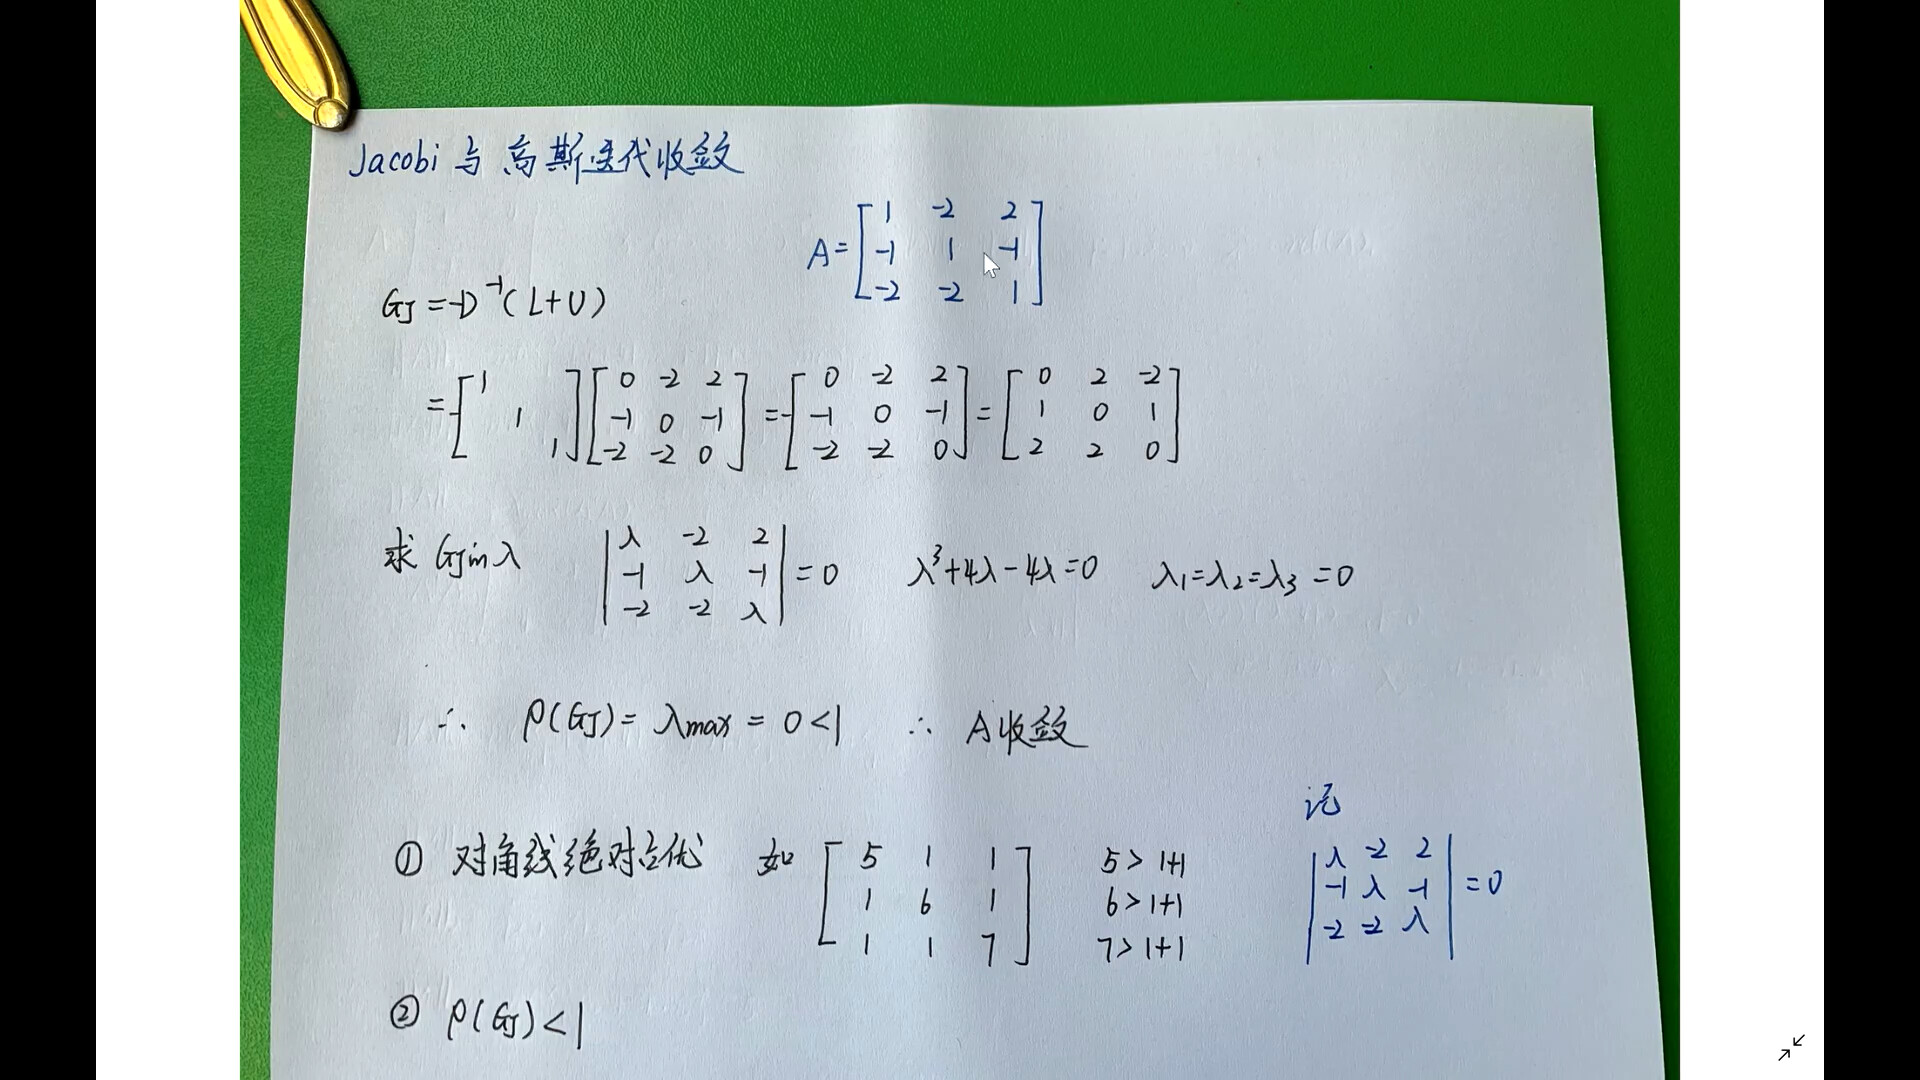 Jacobi 与高斯迭代收敛
A = [1 -2 2
-1 1 -1
-2 -2 1]
GJ = -D⁻¹(L+U)
= -[1 1 1][0 -2 2 -1 0 -1 -2 -2 0] = -[0 -2 2 -1 0 -1 -2 -2 0] = [0 2 -2 1 0 1 2 2 0]
求 GJ的λ |λ -2 2 -1 λ -1 -2 -2 λ| = 0 λ³+4λ-4λ=0 λ₁=λ₂=λ₃=0
∴ ρ(GJ) = λmax = 0<1 ∴ A收敛
① 对角线绝对占优 如 [5 1 1
1 6 1
1 1 7]
5>1+1
6>1+1
7>1+1
记
|λ -2 2
-1 λ -1
-2 -2 λ| = 0
② ρ(GJ)<1